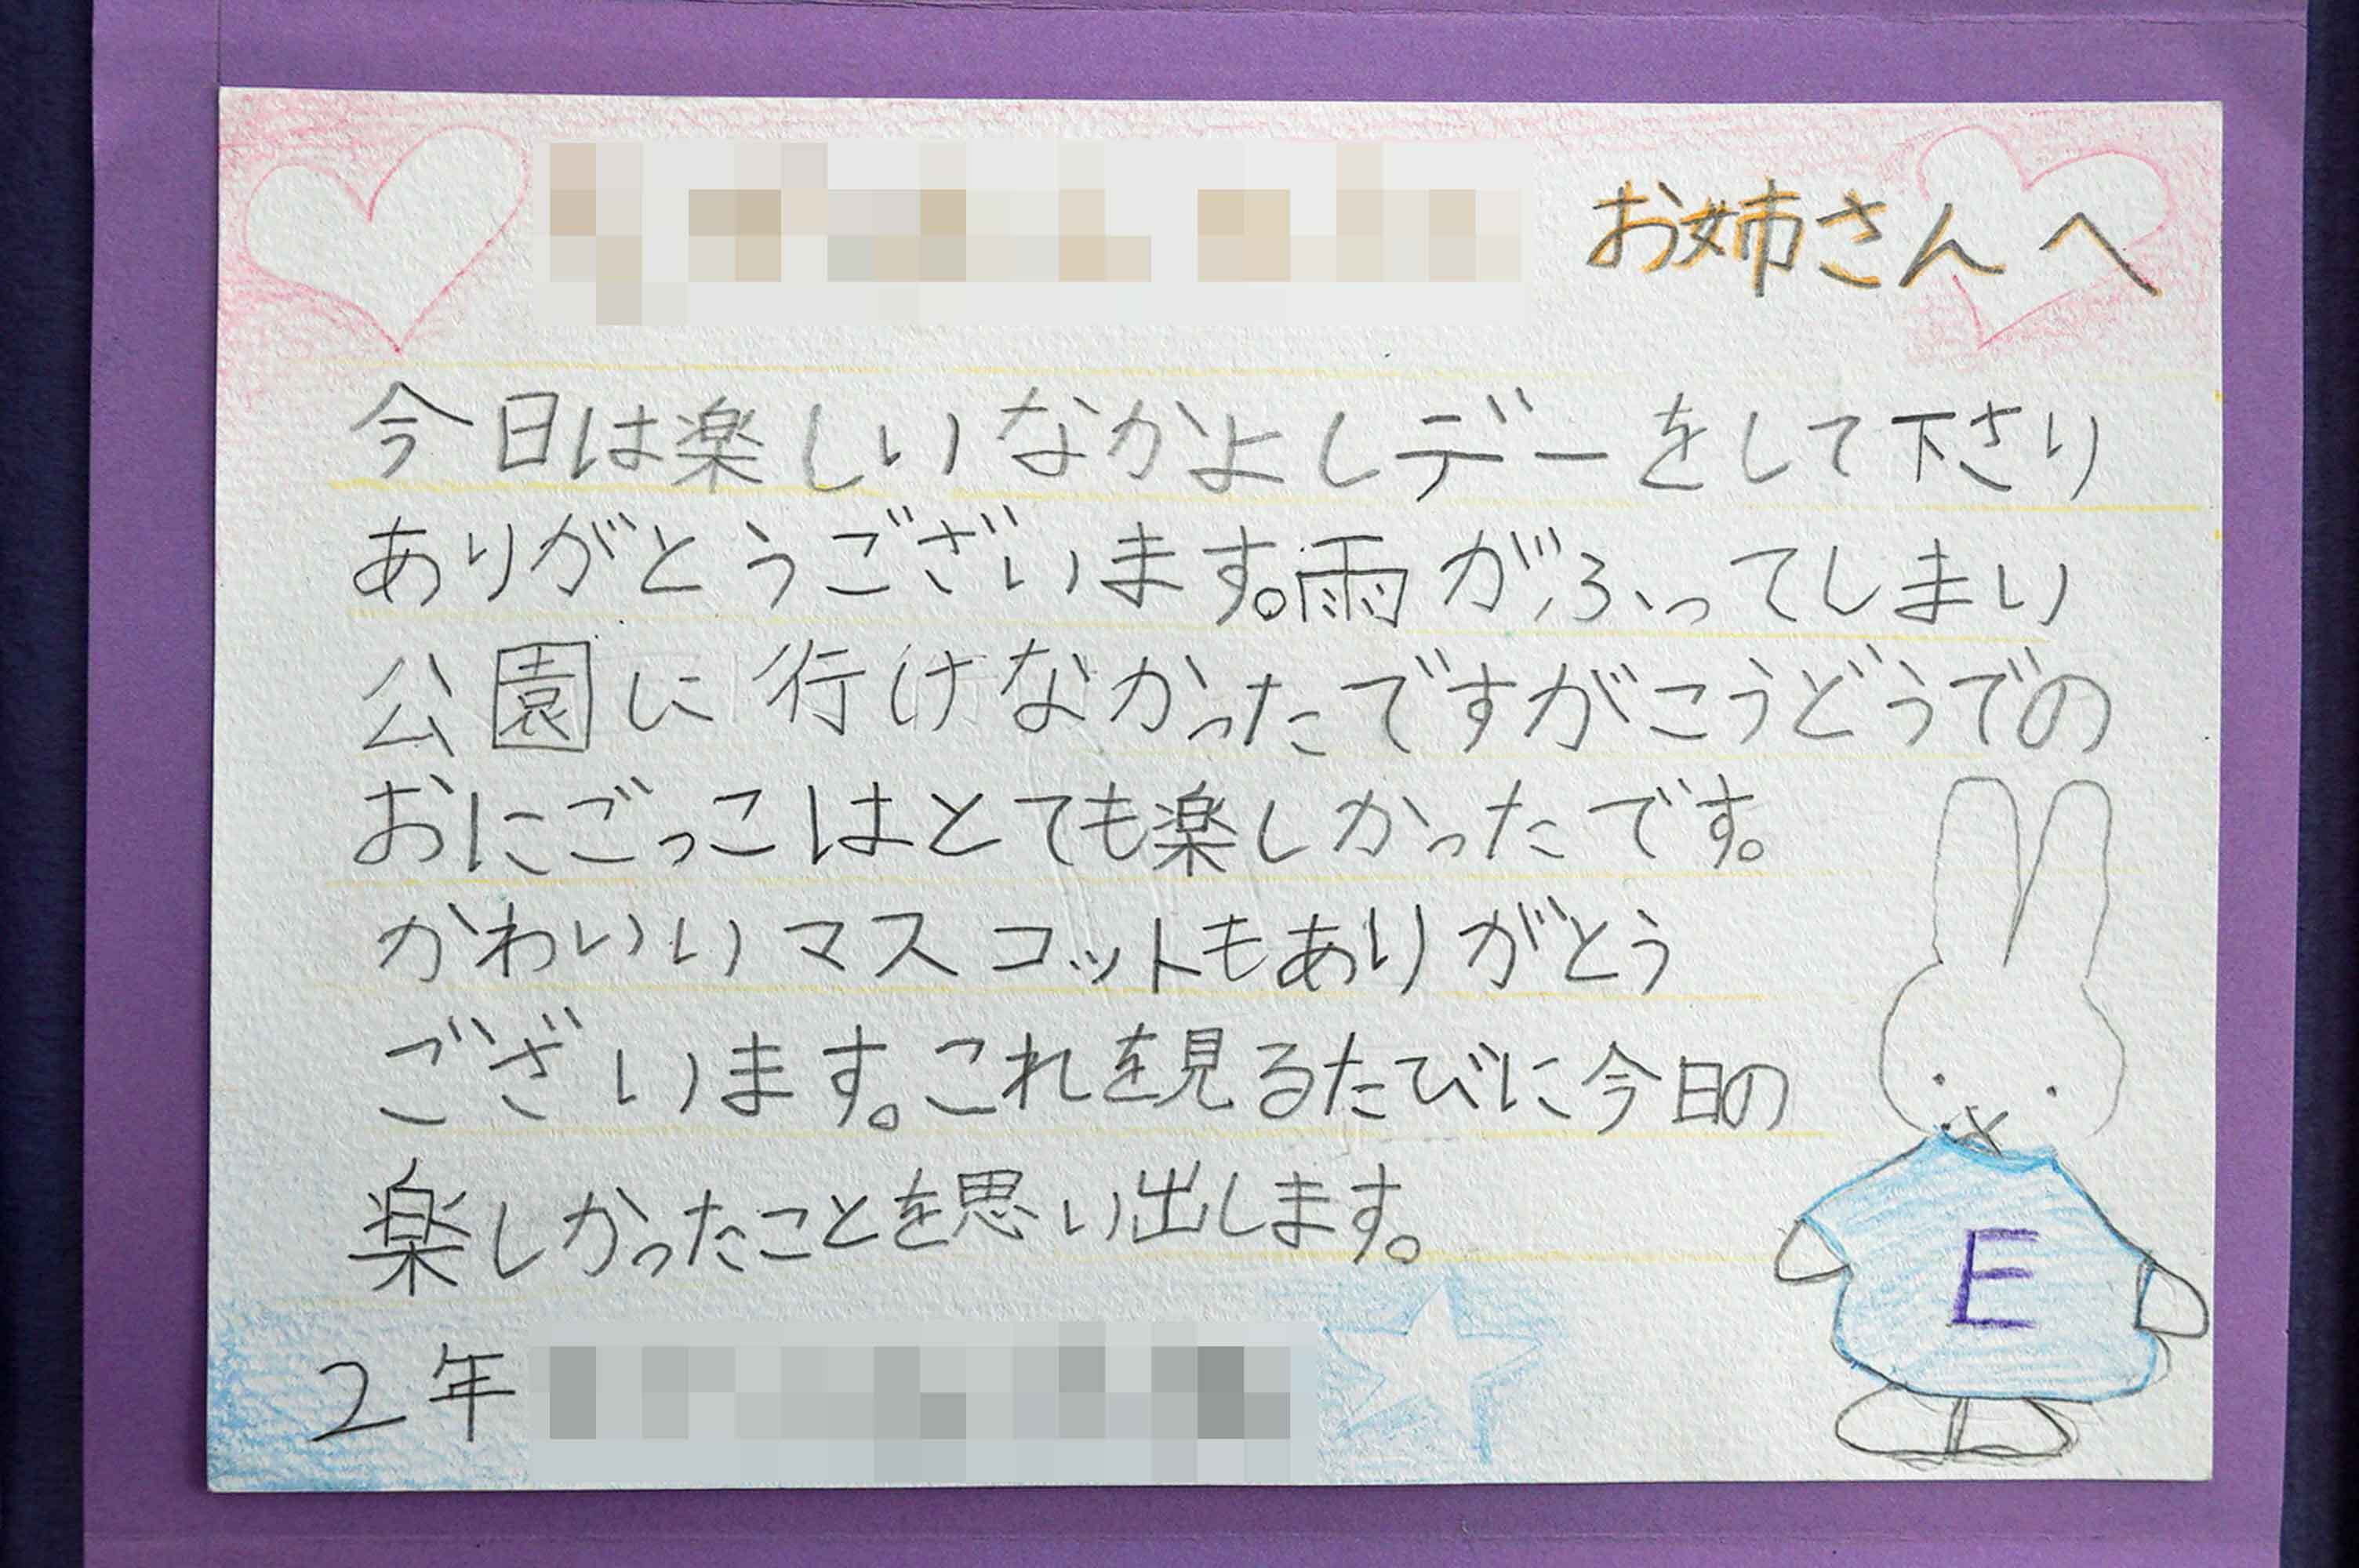 お姉さんへ
今日は楽しいなかよしデーをして下さり
ありがとうございます。雨がふってしまい
公園に行けなかったですがこうどうでの
おにごっこはとても楽しかったです。
かわいいマスコットもありがとう
ございます。これを見るたびに今日の
楽しかったことを思い出します。
2年
E